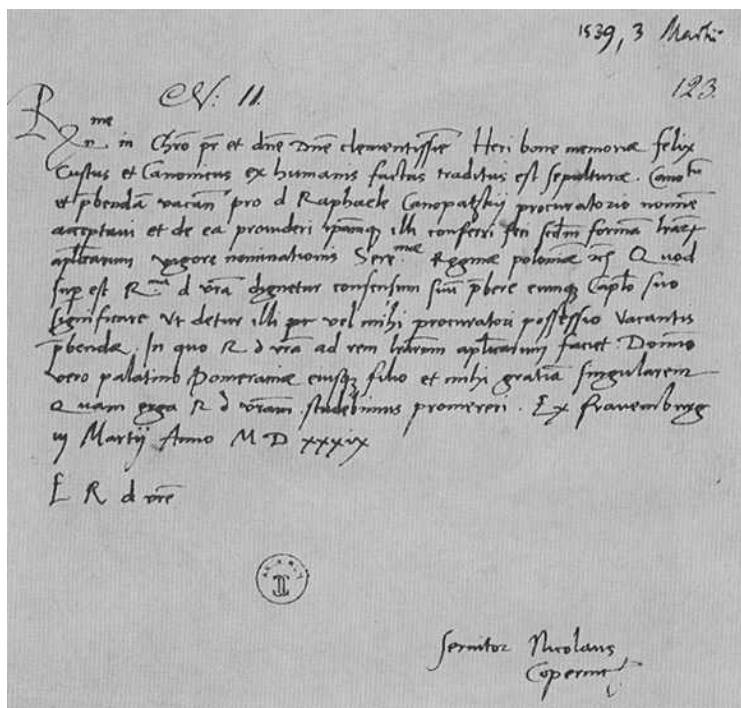 1539, 3 Martii
N: 11. 123.
Rme
in Chro pr et dne Dne clementissie Heri bone memoriæ felix
Custus et Canonicus ex humanis factus traditus est sepulturæ. Canotu
et pbendā vacan pro d Raphaele Canopatzkij procuratorio nomine
acceptavi et de ea provideri ipamq illi conferri feci scdm formam
aplicarum vigore nominationis Sere.mæ Reginæ poloniæ Quod
sup est R.ma d vra dignetur consensum suū pbere eumq Caplo suo
significare Vt detur illi vel mihi procuratori possessio vacantis
pbendæ. In quo R d vra ad rem aplicarum faciet Domino
vero palatino Pomeraniæ eiusq filio et mihi gratiā singularem
Quam erga R d vram studebimus promereri. Ex fravemburg
iij Martij Anno M D xxxix
E R d vre
servitor Nicolaus
Copernic